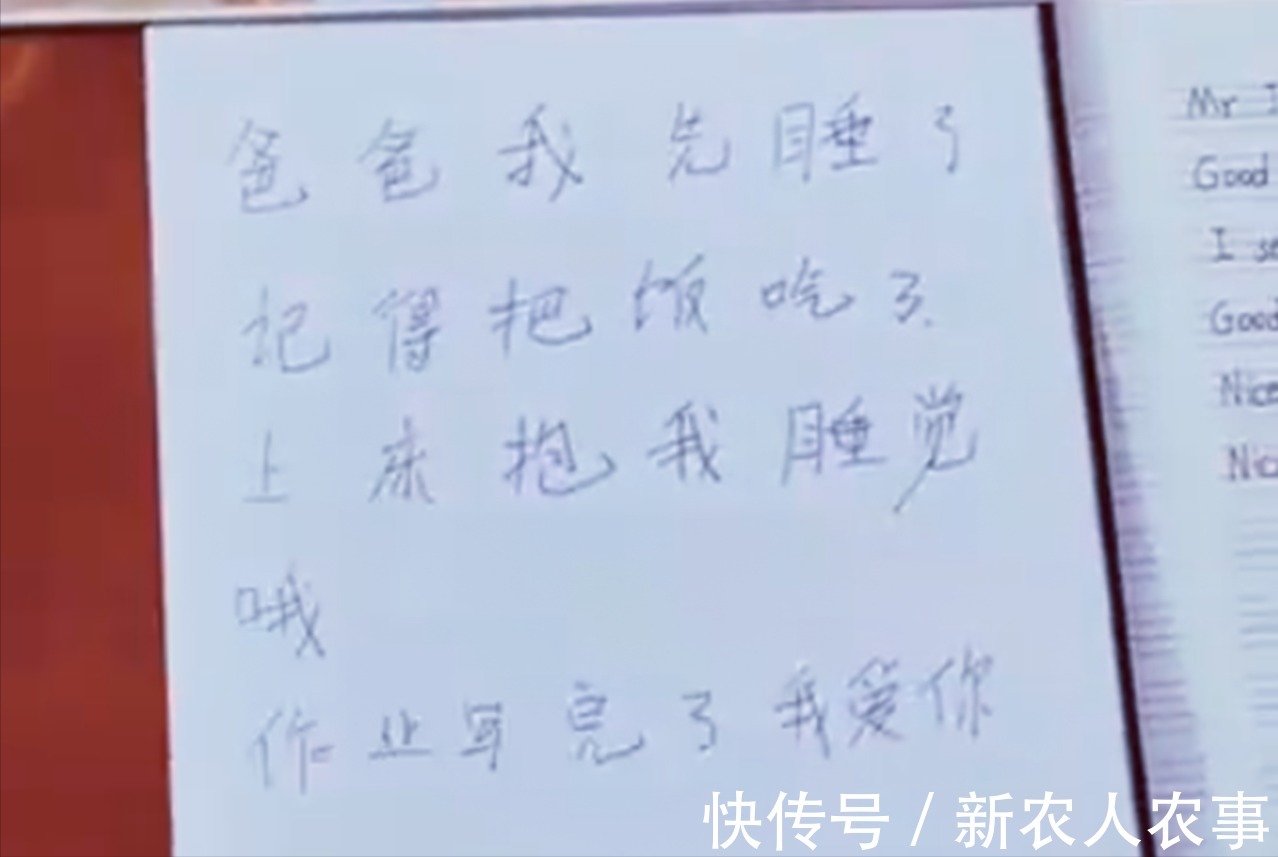 爸爸我先睡了
记得把饭吃了.
上床抱我睡觉
哦
作业写完了我爱你
Mr
Good
I
Good
Nice
快传号/新农人农事